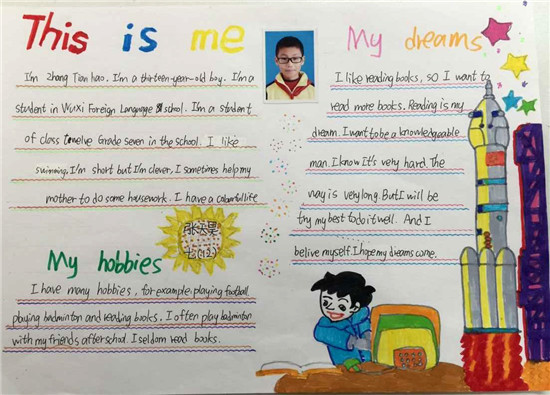 This is me
I'm Zhang Tian hao. I'm a thirteen-year-old boy. I'm a
student in Wuxi Foreign Language school. I'm a student
of class twelve Grade seven in the school. I like
swimming. I'm short but I'm clever. I sometimes help my
mother to do some housework. I have a colourful life
张天昊
七(12)
My hobbies
I have many hobbies, for example: playing football
playing badminton and reading books. I often play badminton
with my friends after school. I seldom read books.
My dreams
I like reading books, so I want to
read more books. Reading is my
dream. I want to be a knowledgeable
man. I know It's very hard. The
way is very long. But I will be
try my best to do it well. And I
belive myself. I hope my dreams come.